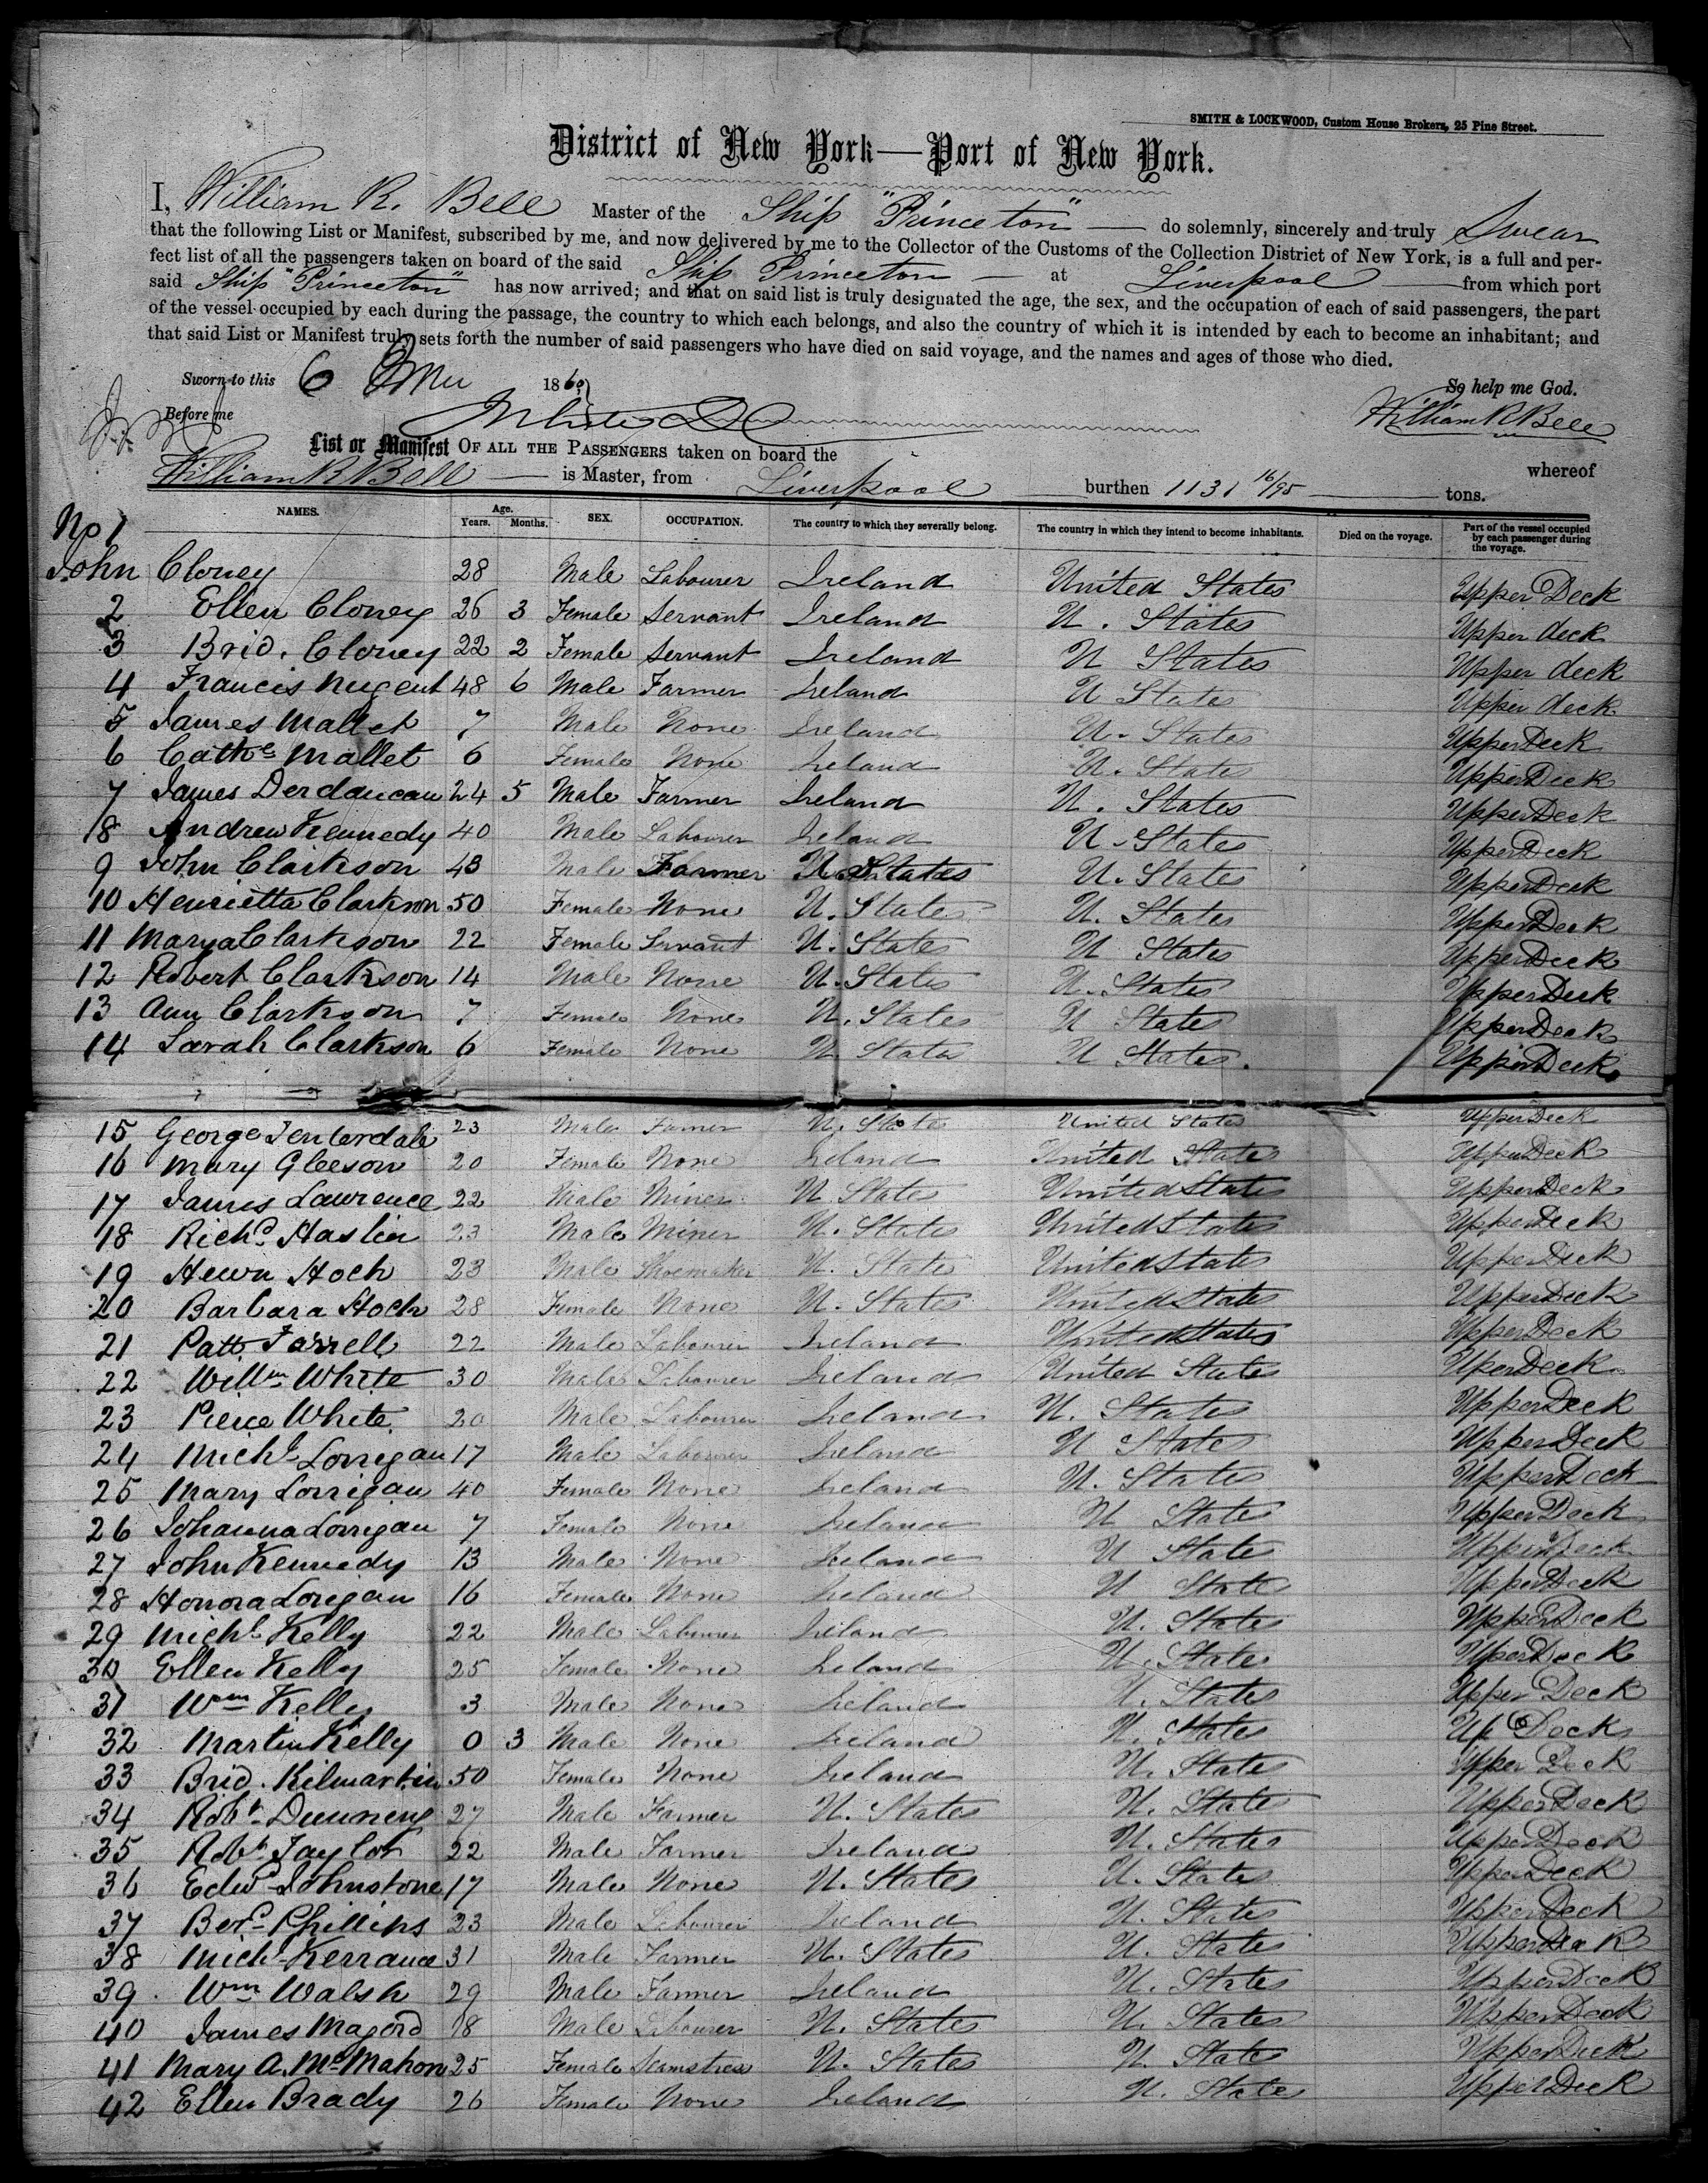 SMITH & LOCKWOOD, Custom House Brokers, 25 Pine Street.
District of New York—Port of New York.
I, William R. Bell Master of the Ship "Princeton" do solemnly, sincerely and truly Swear
that the following List or Manifest, subscribed by me, and now delivered by me to the Collector of the Customs of the Collection District of New York, is a full and per-
fect list of all the passengers taken on board of the said Ship Princeton at Liverpool from which port
said Ship "Princeton" has now arrived; and that on said list is truly designated the age, the sex, and the occupation of each of said passengers, the part
of the vessel occupied by each during the passage, the country to which each belongs, and also the country of which it is intended by each to become an inhabitant; and
that said List or Manifest truly sets forth the number of said passengers who have died on said voyage, and the names and ages of those who died.
Sworn to this 6 1860 So help me God.
Before me William R Bell
List or Manifest OF ALL THE PASSENGERS taken on board the whereof
William R Bell is Master, from Liverpool burthen 1131 16/95 tons.
NAMES. Age. Years. Months. SEX. OCCUPATION. The country to which they severally belong. The country in which they intend to become inhabitants. Died on the voyage. Part of the vessel occupied by each passenger during the voyage.
No 1
John Cloney 28 Male Labourer Ireland United States Upper Deck
2 Ellen Cloney 26 3 Female Servant Ireland U. States Upper deck
3 Brid. Cloney 22 2 Female Servant Ireland U States Upper deck
4 Francis Nugent 48 6 Male Farmer Ireland U States Upper deck
5 James Mallet 7 Male None Ireland U. States Upper Deck
6 Cathe Mallet 6 Female None Ireland U. States Upper Deck
7 James 24 5 Male Farmer Ireland U. States Upper Deck
8 Andrew Kennedy 40 Male Labourer Ireland U. States Upper Deck
9 John Clarkson 43 Male Farmer U. States U. States Upper Deck
10 Henrietta Clarkson 50 Female None U. States U. States Upper Deck
11 Mary a Clarkson 22 Female Servant U. States U States Upper Deck
12 Robert Clarkson 14 Male None U. States U. States Upper Deck
13 Ann Clarkson 7 Female None U. States U States Upper Deck
14 Sarah Clarkson 6 Female None U. States U States. Upper Deck
15 George 23 Male Farmer U. State United States Upper Deck
16 Mary Gleeson 20 Female None Ireland United States Upper Deck
17 James Lawrence 22 Male Miner U State United States Upper Deck
18 Richd Haslin 23 Male Miner U. State United States Upper Deck
19 Hoch 23 Male Shoemaker U. State United States Upper Deck
20 Barbara Hoch 28 Female None U. States United States Upper Deck
21 Patt Farrell 22 Male Labourer Ireland United States Upper Deck
22 Willm White 30 Male Labourer Ireland United States Uper Deck
23 Pierce White 20 Male Labourer Ireland U. States Upper Deck
24 Michl Lorrigan 17 Male Labourer Ireland U States Upper Deck
25 Mary Lorrigan 40 Female None Ireland U. States Upper Deck
26 Johanna Lorrigan 7 Female None Ireland U State Upper Deck
27 John Kennedy 13 Male None Ireland U State Upper Deck
28 Honora Lorigan 16 Female None Ireland U State Upper Deck
29 Michl Kelly 22 Male Labourer Ireland U. State Upper Deck
30 Ellen Kelly 25 Female None Ireland U. State Uper Deck
31 Wm Kelly 3 Male None Ireland U. States Upper Deck
32 Martin Kelly 0 3 Male None Ireland U. States Up Deck
33 Brid. Kilmartin 50 Female None Ireland U. States Upper Deck
34 Robt 27 Male Farmer U. States U. State Upper Deck
35 Robt Taylor 22 Male Farmer Ireland U. States Upper Deck
36 Edwd Johnstone 17 Male None U. States U. States Upper Deck
37 Phillips 23 Male Labourer Ireland U. States Upper Deck
38 Michl Kerrance 31 Male Farmer U. States U. States Upper Deck
39 Wm Walsh 29 Male Farmer Ireland U. States Upper Deck
40 James 18 Male Labourer U. States U. States Upper Deck
41 Mary A. McMahon 25 Female Seamstress U. States U. State Upper Deck
42 Ellen Brady 26 Female None Ireland U. State Upper Deck